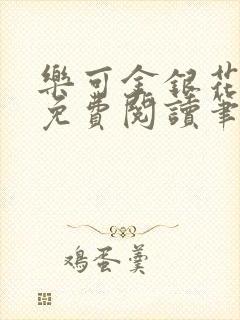 樂可金銀花
免費閱讀筆
鸡蛋羹